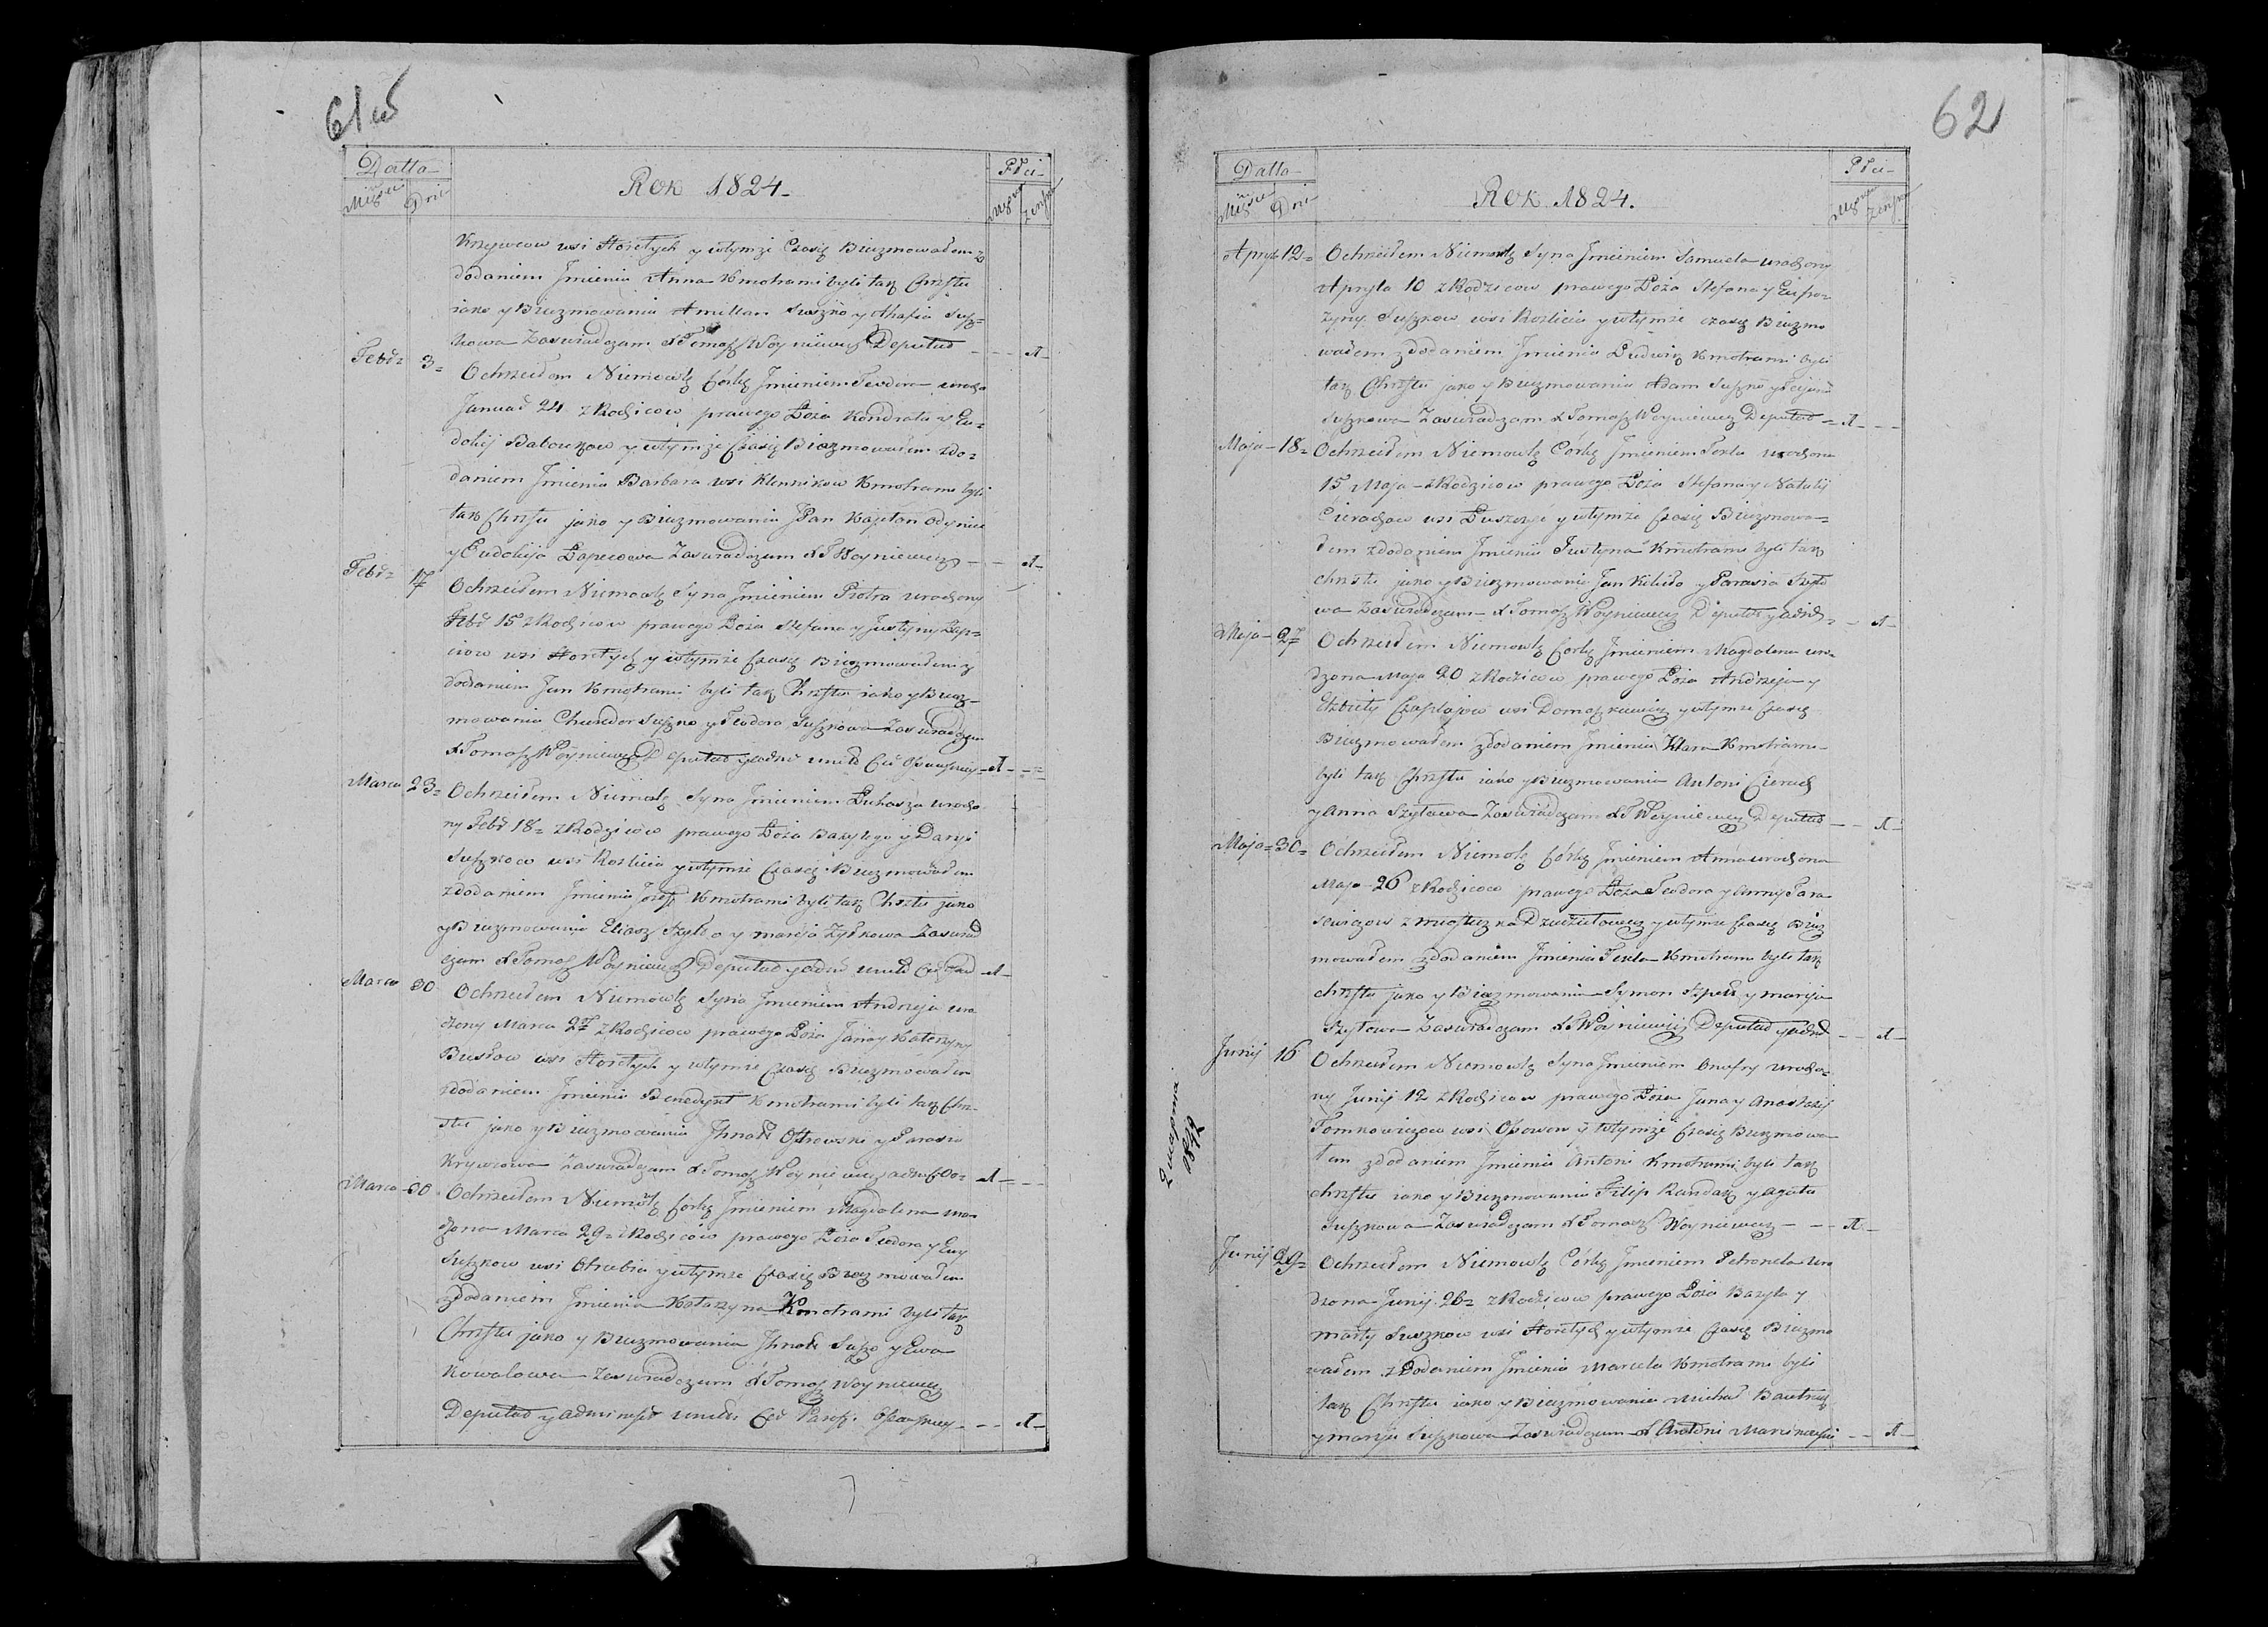 61 об
Datta
Rok 1824
Płci
Miesięci Dni
Męzka Zeńska
Krzywcow wsi Horełych y wtymże Czasie Bierzmowałem z
dodaniem Jmienia Anna Kmotrami byli tak Chrztu
iako y Bierzmowania Amillan Suszko y Ahafia Susz=
kowa Zaswiadczam X Tomasz Woyniewicz Deputad - - - 1 -
Febr= 3= Ochrzciłem Niemowlę Córkę Jmieniem Teodora urodzo
Januar 24 z Rodzicow prawego Łoża Kondrata y Eu=
dokij Batowkow y wtymże Czasie Bierzmowałem zdo=
daniem Jmienia Barbara wsi Klennikow Kmotrami byli
tak Chrztu jako y Bierzmowania JPan Kajetan Odyniec
y Eudokija Łapciowa Zaswiadczam X T Woyniewicz - - 1 -
Febr= 17 Ochrzciłem Niemowlę Syna Jmieniem Piotra urodzony
Febr 15 z Rodzicow prawego Łoża Stefana y Justyny Łap=
ciow wsi Horełych y wtymże Czasie Bierzmowałem z
dodaniem Jan Kmotrami byli tak Chrztu iako y Bierz=
mowania Chwedor Suszko y Teodora Suszkowa Zaswiadczam
X Tomasz Woyniewicz Deputad y admr - 1 - - -
Marca 23= Ochrzciłem Niemowlę Syna Jmieniem Łukasza urodzo
ny Febr 18= z Rodzicow prawego Łoża Bazylego y Daryi
Suszkow wsi Kozlicia y wtymże Czasie Bierzmowałem
zdodaniem Jmienia Jozef Kmotrami byli tak Chrztu jako
y Bierzmowania Eliasz Szyło y marija Zyłkowa Zaswiad
czam X Tomasz Woyniewicz Deputad y admr - 1 -
Marca 30 Ochrzciłem Niemowlę Syna Jmieniem Andrzeja uro
dzony Marca 27 z Rodzicow prawego Łoża Jana y Katerzyny
Busłow wsi Horełych y wtymże Czasie Bierzmowałem
zdodaniem Jmienia Benedykt Kmotrami byli tak Chrz=
tu jako y Bierzmowania Jhnat Ostrowski y Parasia
Krywcowa Zaswiadczam X Tomasz Woyniewicz - 1 - - -
Marca 30 Ochrzciłem Niemowlę Córkę Jmieniem Magdalena uro
dzona Marca 29= z Rodzicow prawego Łoża Teodora y Ewy
Suszkow wsi Chrabia y wtymże Czasie Bierzmowałem
zdodaniem Jmienia Katarzyna Kmotrami byli tak
Chrztu jako y Bierzmowania Jhnat Suszko y Ewa
Kowalowa Zaswiadczam X Tomasz Woyniewicz
Deputad y Administr - - - 1 -
62
Datta
Rok 1824.
Płci
Miesięci Dni
Męzka Zeńska
Apryl 12= Ochrzciłem Niemowlę Syna Jmieniem Samuela urodzony
Apryla 10 z Rodzicow prawego Łoża Stefana y Eufro=
zyny Suszkow wsi Kozlicia y wtymże czasie Bierzmo
wałem zdodaniem Jmienia Ludwik Kmotrami byli
tak Chrztu jako y Bierzmowania Adam Suszko y
Suszkowa Zaswiadczam X Tomasz Woyniewicz Deputad = 1 - - -
Maja - 18= Ochrzciłem Niemowlę Córkę Jmieniem Tekla urodzona
15 Maja - z Rodzicow prawego Łoża Stefana y Natalij
Cierachow wsi y wtymże Czasie Bierzmowa=
łem zdodaniem Jmienia Justyna Kmotrami byli tak
chrztu jako y Bierzmowania Jan y Parasia Szyło
wa Zaswiadczam X Tomasz Woyniewicz Deputat y admr - 1 -
Maja - 27 Ochrzciłem Niemowlę Córkę Jmieniem Magdalena uro=
dzona Maja 20 z Rodzicow prawego Łoża Andrzeja y
Elżbiety Czaplajow wsi Domaszkiewicz y wtymże Czasie
Bierzmowałem zdodaniem Jmienia Klara Kmotrami
byli tak Chrztu iako y Bierzmowania Antoni Cierach
y Anna Szyłowa Zaswiadczam X T Woyniewicz Deputad - - 1 -
Maja= 30= Ochrzciłem Niemowlę Córkę Jmieniem Anna urodzona
Maja 26 z Rodzicow prawego Łoża Teodora y Anny Tara
sewiczow z miasteczka y wtymże Czasie Bierz
mowałem zdodaniem Jmienia Tekla Kmotrami byli tak
chrztu jako y Bierzmowania Symon y marija
Szyłowa Zaswiadczam X T Woyniewicz Deputad y admr - - 1 -
Junij 16 Ochrzciłem Niemowlę Syna Jmieniem Onufry urodzo=
ny Junij 12 z Rodzicow prawego Łoża Jana y Anastazij
Tomkowiczow wsi Osowow y wtymże Czasie Bierzmowa
łem zdodaniem Jmienia Antoni Kmotrami byli tak
chrztu iako y Bierzmowania Filip Kundas y Agata
Suszkowa Zaswiadczam X Tomasz Woyniewicz - - - 1 -
Junij 29= Ochrzciłem Niemowlę Córkę Jmieniem Petronela uro
dzona Junij 26= z Rodzicow prawego Łoża Bazyla y
marty Suszkow wsi Horełych y wtymże Czasie Bierzmo
wałem zdodaniem Jmienia Marcela Kmotrami byli
tak Chrztu iako y Bierzmowania Michał
y marija Suszkowa Zaswiadczam X Antoni - - 1 -
2 марта
1842